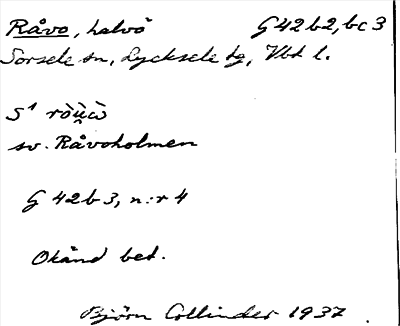 Råvo, halvö G 42 b 2, b c 3
Sorsele sn, Lycksele tg, Vbt l.
S¹
sv. Råvoholmen
G 42 b 3, n:r 4
Okänd bet.
Björn Collinder 1937